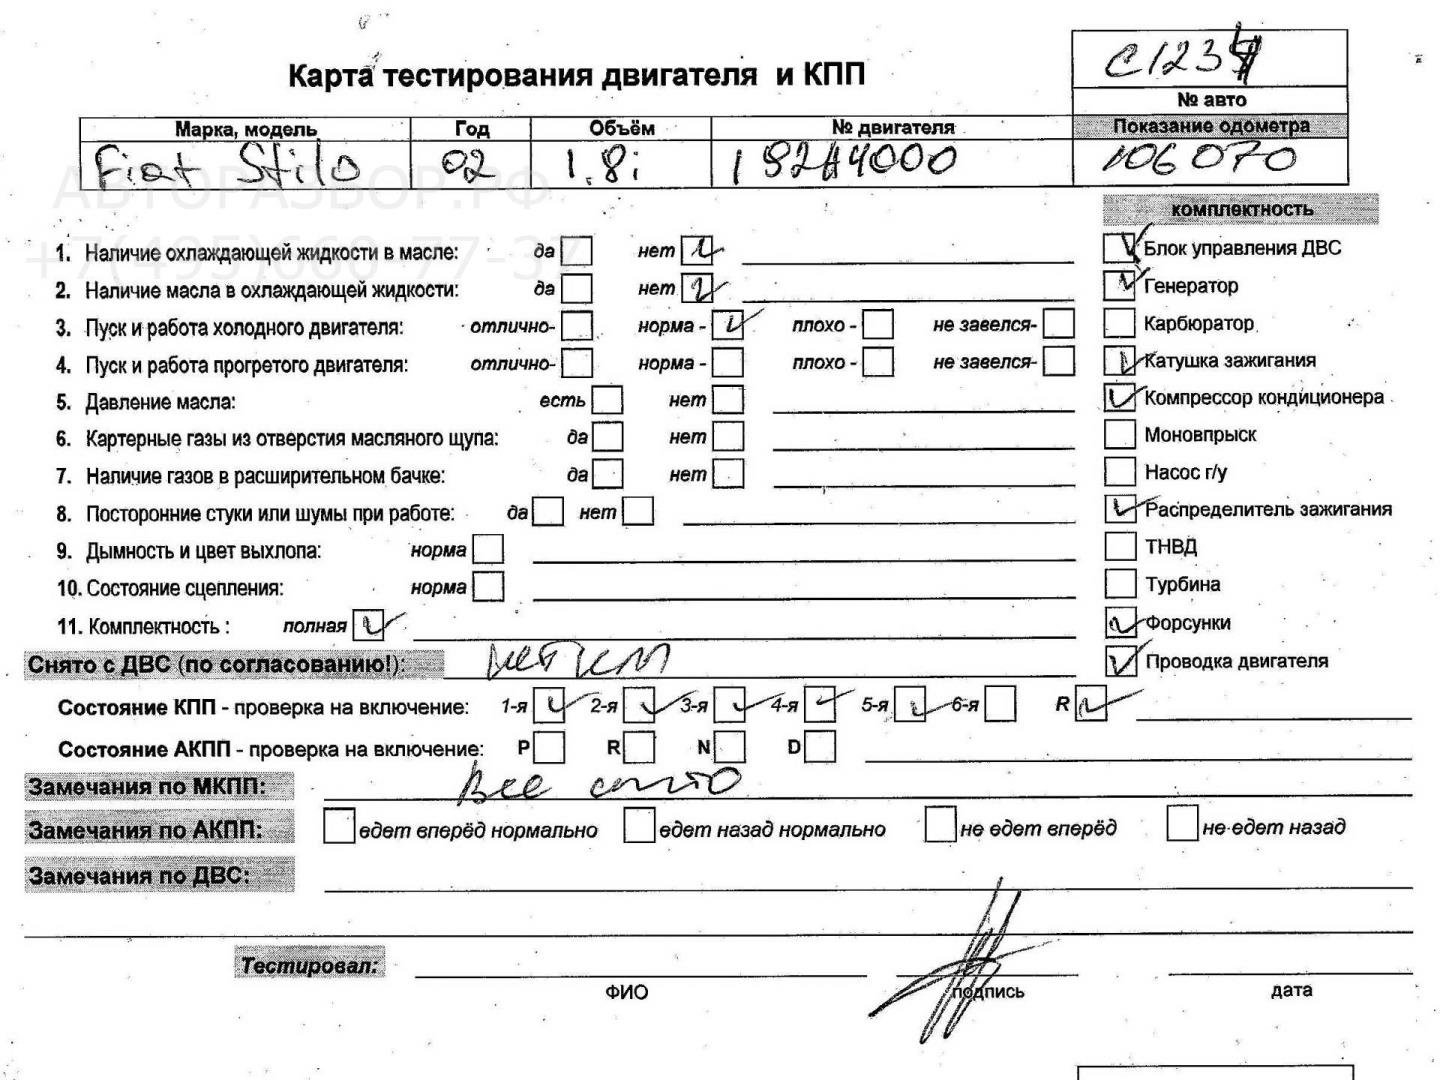 С1234
Карта тестирования двигателя и КПП
№ авто
Марка, модель Год Объём № двигателя Показание одометра
Fiat Stilo 02 1.8i 192A4000 106070
АВТОРАЗБОР.РФ
комплектность
1. Наличие охлаждающей жидкости в масле: да нет Блок управления ДВС
+7(495)668-77-37
2. Наличие масла в охлаждающей жидкости: да нет Генератор
3. Пуск и работа холодного двигателя: отлично- норма - плохо - не завелся- Карбюратор
4. Пуск и работа прогретого двигателя: отлично- норма - плохо - не завелся- Катушка зажигания
5. Давление масла: есть нет Компрессор кондиционера
6. Картерные газы из отверстия масляного щупа: да нет Моновпрыск
7. Наличие газов в расширительном бачке: да нет Насос г/у
8. Посторонние стуки или шумы при работе: да нет Распределитель зажигания
9. Дымность и цвет выхлопа: норма ТНВД
10. Состояние сцепления: норма Турбина
11. Комплектность : полная Форсунки
Снято с ДВС (по согласованию!): Проводка двигателя
Состояние КПП - проверка на включение: 1-я 2-я 3-я 4-я 5-я 6-я R
Состояние АКПП - проверка на включение: P R N D
Замечания по МКПП: Все
Замечания по АКПП: едет вперёд нормально едет назад нормально не едет вперёд не едет назад
Замечания по ДВС:
Тестировал:
ФИО подпись дата